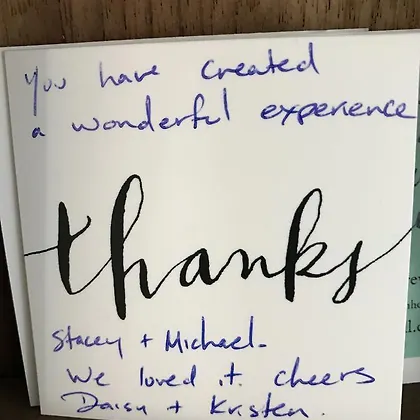 you have created
a wonderful experience
thanks
Stacey + Michael-
We loved it. cheers
Daisy + Kristen.